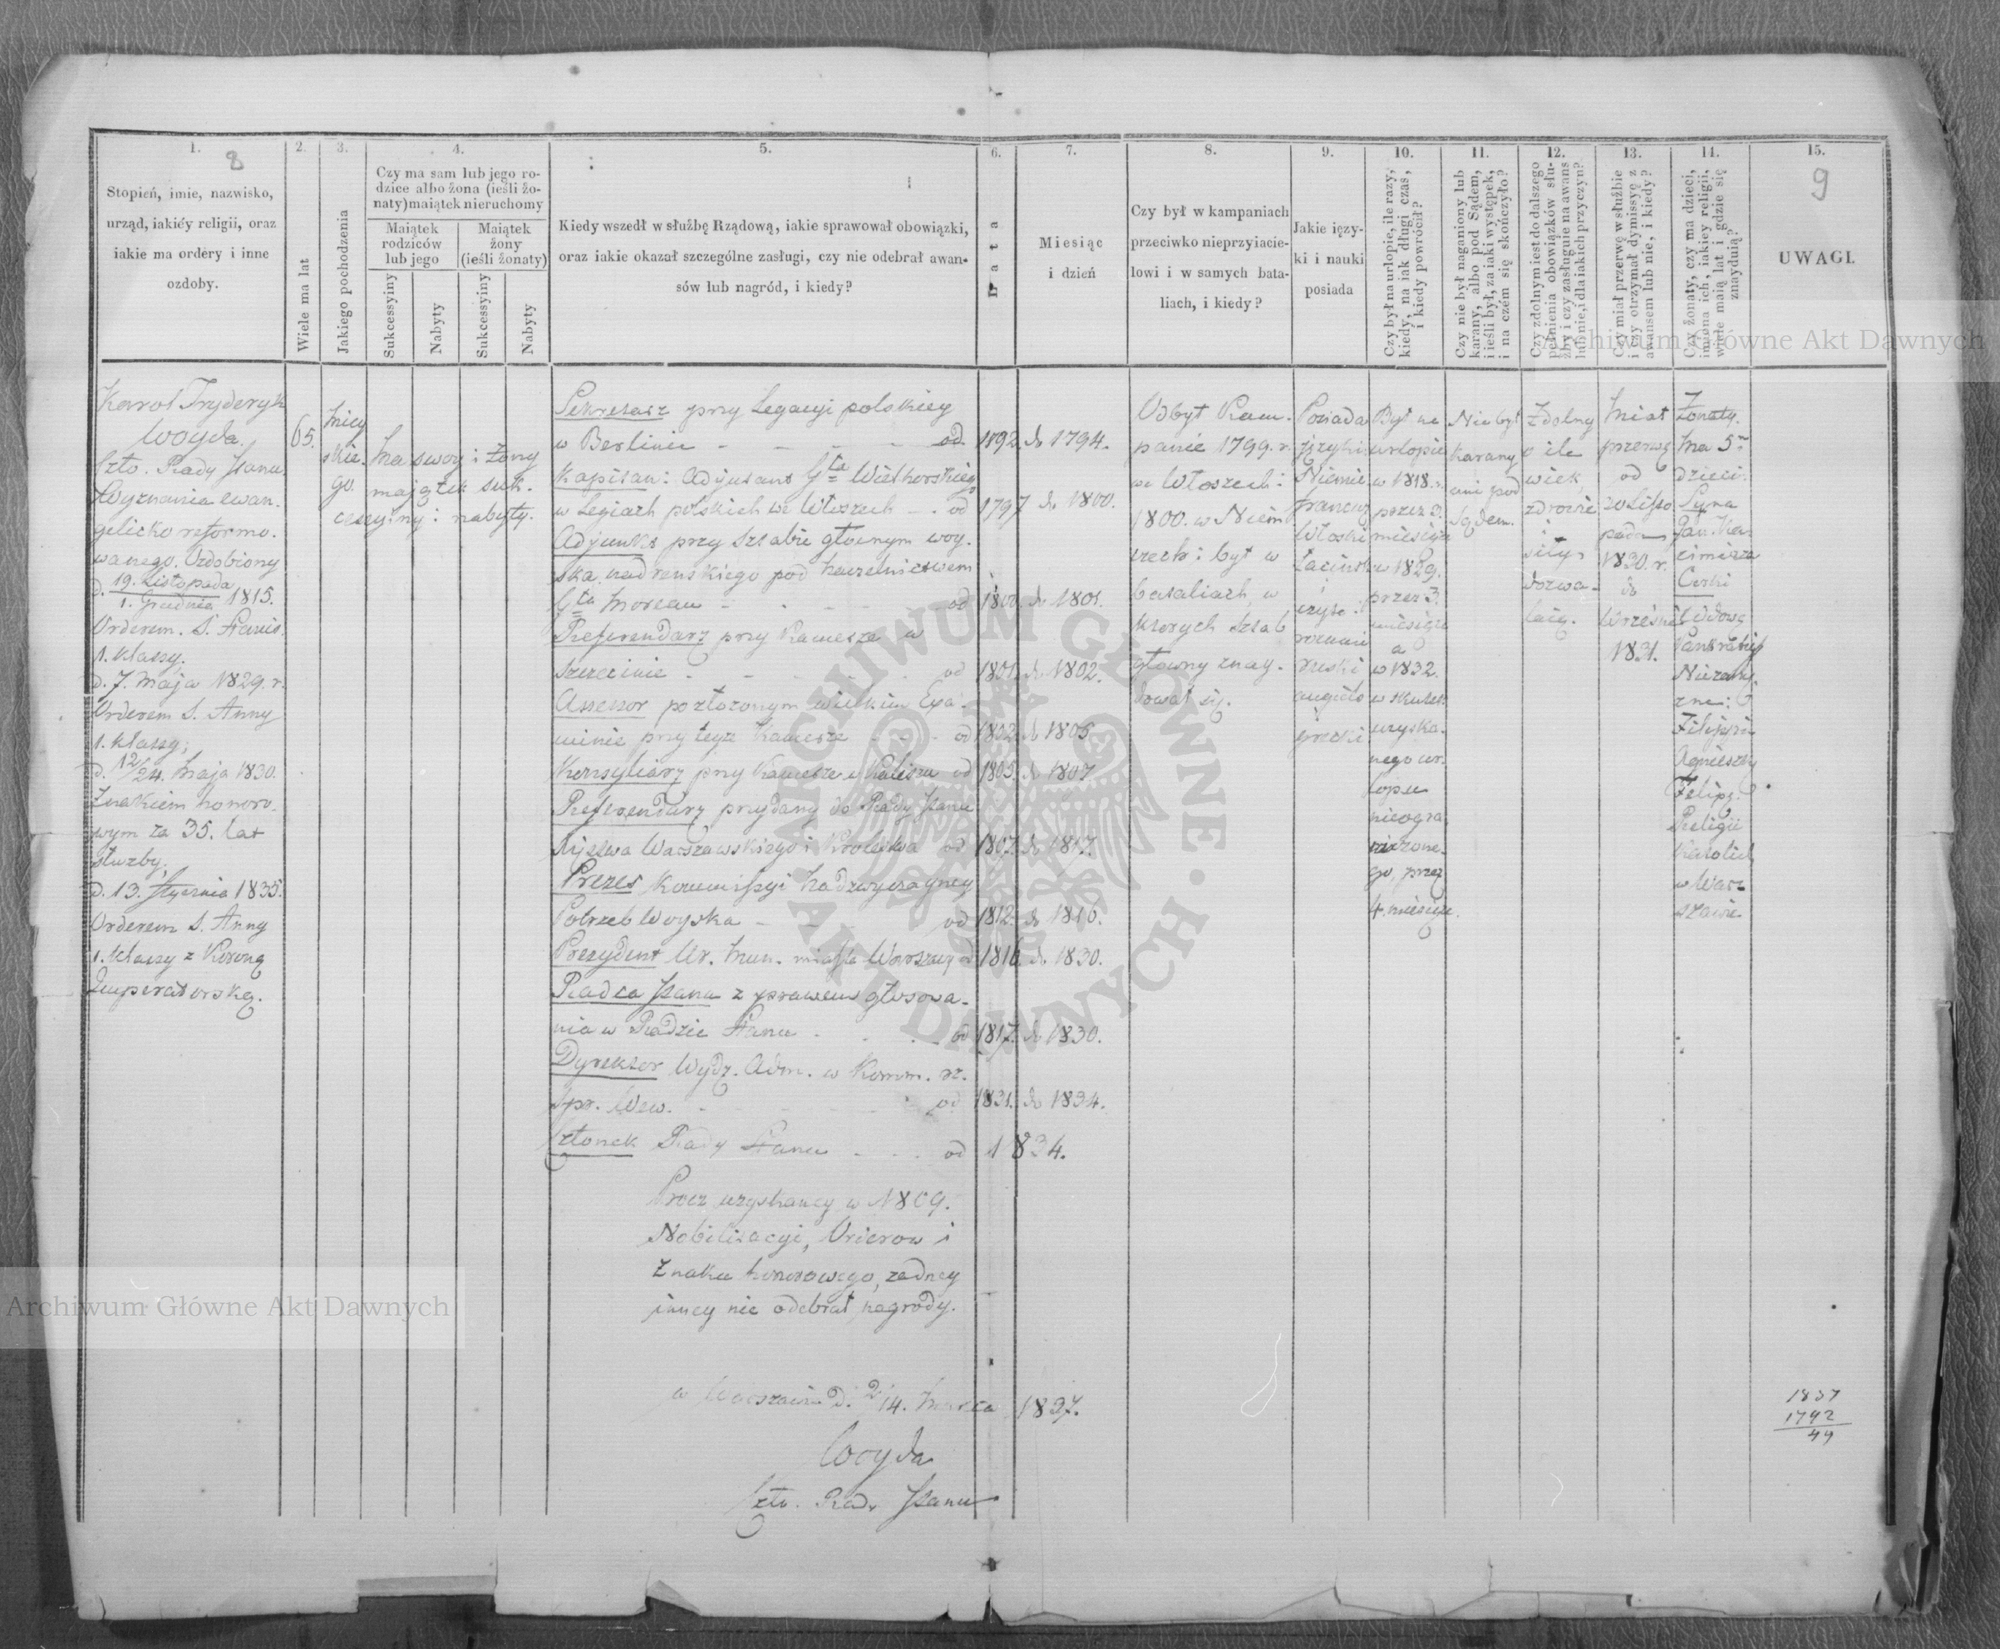 1.
8
Stopień, imie, nazwisko,
urząd, iakiéy religii, oraz
iakie ma ordery i inne
ozdoby.
2.
Wiele ma lat
3.
Jakiego pochodzenia
4.
Czy ma sam lub jego ro-
dzice albo żona (ieśli żo-
naty) maiątek nieruchomy
Maiątek
rodziców
lub jego
Maiątek
żony
(ieśli żonaty)
Sukcessyiny
Nabyty
Sukcessyiny
Nabyty
5.
Kiedy wszedł w służbę Rządową, iakie sprawował obowiązki,
oraz iakie okazał szczególne zasługi, czy nie odebrał awan-
sów lub nagród, i kiedy?
6.
Data
7.
Miesiąc
i dzień
8.
Czy był w kampaniach
przeciwko nieprzyiacie-
lowi i w samych bata-
liach, i kiedy?
9.
Jakie ięzy-
ki i nauki
posiada
10.
Czy był na urlopie, ile razy,
kiedy, na iak długi czas,
i kiedy powrócił?
11.
Czy nie był naganiony lub
karany, albo pod Sądem,
i ieśli był, za iaki występek,
i na czém się skończyło?
12.
Czy zdolnym iest do dalszego
pełnienia obowiązków słu-
żby i czy zasługuie na awans
lub nie, i dla iakich przyczyn?
13.
Czy miał przerwę w służbie
i czy otrzymał dymissyę z
awansem lub nie, i kiedy?
14.
Czy żonaty, czy ma dzieci,
imiona ich, iakiey religii,
wiele maią lat i gdzie się
znayduią?
15.
9
UWAGI.
Karol Fryderyk
Woyda.
Czło. Rady Stanu
Wyznania ewan-
gelicko reformo-
wanego. Ozdobiony
d. 19. Listopada
1. Grudnia 1815.
Orderem S. Stanis.
1. klassy.
d. 7. Maja 1829. r.
Orderem S. Anny
1. klassy;
d. 12/24. Maja 1830.
Znakiem honoro-
wym za 35. lat
służby;
d. 13. Stycznia 1835.
Orderem S. Anny
1. klassy z Koroną
Imperatorską.
65.
Miey
skie-
go.
Ma swoy i żony
majątek suk-
cessyiny i nabyty.
Sekretarz przy Legacyi polskiey
w Berlinie - - - - od 1792 do 1794.
Kapitan: Adjutant Gła Wielhorskiego
w Legiach polskich we Włoszech - . od 1797 do 1800.
Adjunkt przy Sztabie głównym woy-
ska nadreńskiego pod naczelnictwem
Gła Moreau - - - - od 1800. do 1801.
Referendarz przy Kamerze w
Szczecinie - - - - od 1801. do 1802.
Assessor po złożonym wielkim Exa-
minie przy teyże Kamerze - - - od 1802. do 1805
Konsyliarz przy Kamerze w Kaliszu od 1805. do 1807
Referendarz przydany do Rady Stanu
Xięstwa Warszawskiego i Królestwa od 1807. do 1817.
Prezes Kommissyi Nadzwyczayney
Potrzeb Woyska - - - od 1812. do 1816.
Prezydent Ur. Mun. miasta Warszawy od 1816. do 1830.
Radca Stanu z prawem głosowa-
nia w Radzie Stanu - . . od 1817. do 1830.
Dyrektor Wydz. Adm. w Komm. rz.
Spr. Wew. - - - - od 1831. do 1834.
Członek Rady Stanu - - . od 1834.
Prócz uzyskaney w 1809.
Nobilitacyi, Orderow i
Znaku honorowego, żadney
inney nie odebrał nagrody.
w Warszawie d. 2/14. Marca 1837.
Woyda
Czło. Rady Stanu
Odbył Kam-
panie 1799. r.
we Włoszech:
1800. w Niem
czech: był w
bataliach, w
ktorych Sztab
główny znay-
dował się.
Posiada
języki
Niemie
francuz
Włoski
Łacińsk
czyta i
rozumie
ruski
angiels
grecki
Był na
urlopie
w 1818. r.
przez 3.
miesiące
w 1829.
przez 3.
miesiące
a
w 1832.
w skutek
uzyska-
nego ur-
lopu
nieogra
niczone-
go, przez
4. miesiące.
Nie był
karany
ani pod
Sądem.
Zdolny
o ile
wiek,
zdrowie
i
siły
dozwa-
laią.
Miał
przerwę
od
20 Listo
pada
1830. r.
do
Wrześni
1831.
Żonaty.
Ma 5ro
dzieci.
Syna
Jan. Ka-
zimierza
Corki
Wdowę
Niezamę
żne:
Filipin
Agnieszkę
Felipę.
Religii
Katolick
w War-
szawie
1837
1792
44
Archiwum Główne Akt Dawnych
Archiwum Główne Akt Dawnych
ARCHIWUM GŁÓWNE AKT DAWNYCH